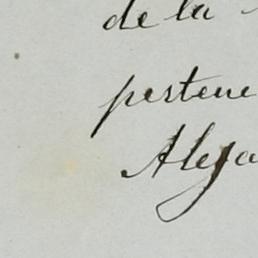 de la
pertene
Aleja